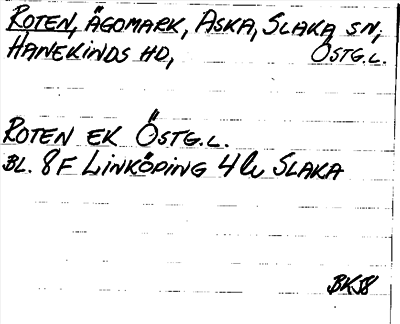 ROTEN, ÄGOMARK, ASKA, SLAKA SN,
HANEKINDS HD, ÖSTG.L.
ROTEN EK ÖSTG.L.
BL. 8F LINKÖPING 4 SLAKA
BK58